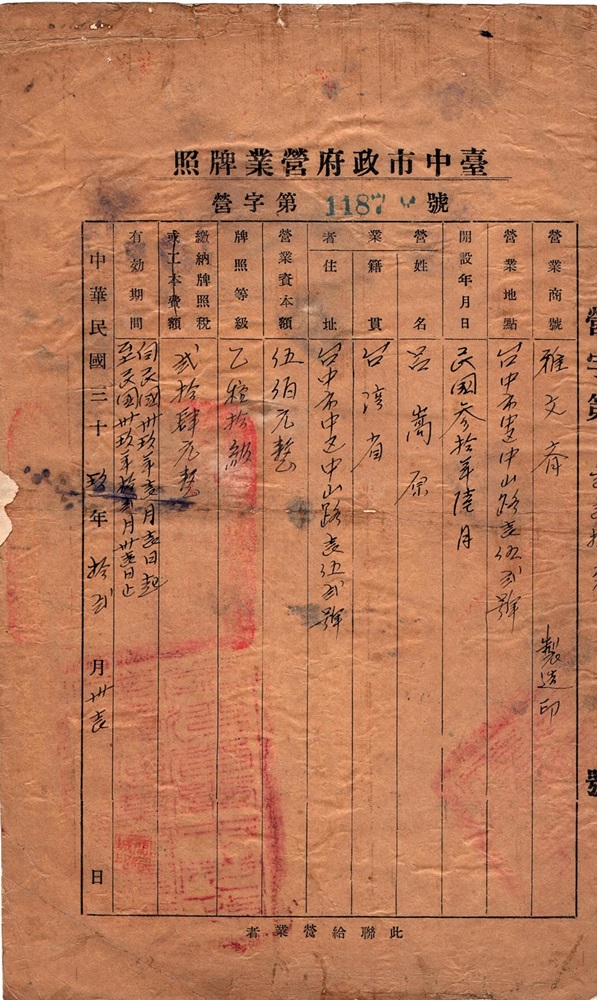 臺中市政府營業牌照
營字第1187號
營業商號 雅文齋 製造印
營業地點 台中市中區中山路壹伍弍號
開設年月日 民國參拾年陸月
營業者 姓名 呂嵩原
籍貫 台湾省
住址 台中市中区中山路壹伍弍號
營業資本額 伍佰元整
牌照等級 乙種拾級
繳納牌照稅或工本費額 弍拾肆元整
有効期間 自民國卅玖年壹月壹日起
至民國卅玖年拾弍月卅壹日止
中華民國三十玖年拾弍月卅壹日
此聯給營業者
營字第
號